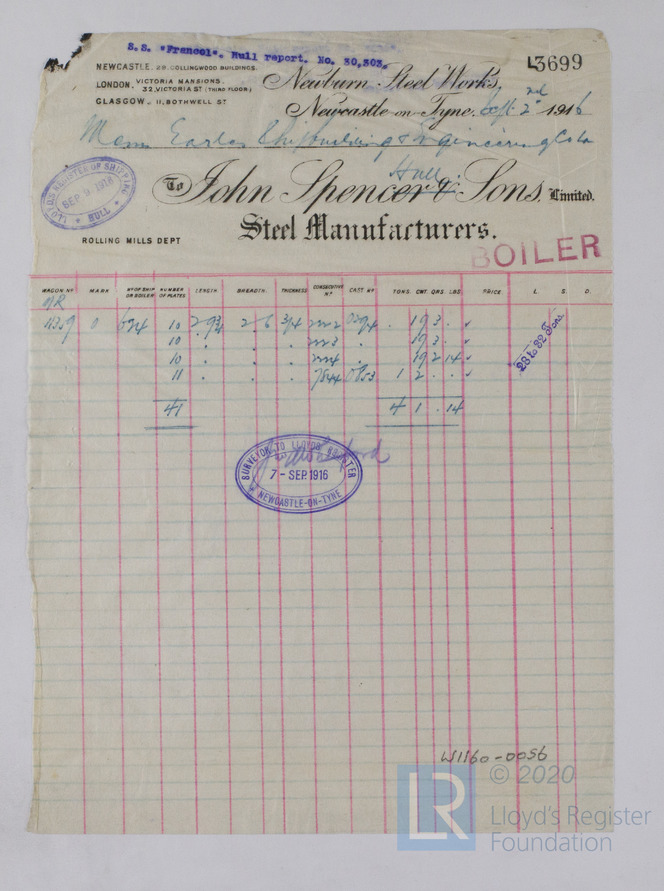 S.S. "Francol". Hull report. No. 30,303.
L3699
NEWCASTLE. 28, COLLINGWOOD BUILDINGS.
LONDON. VICTORIA MANSIONS. 32, VICTORIA ST (THIRD FLOOR)
GLASGOW. 11, BOTHWELL ST
Newburn Steel Works,
Newcastle-on-Tyne. Sept 2nd 1916
Messrs Earles Shipbuilding & Engineering Co Ld
Hull.
To John Spencer & Sons, Limited.
Steel Manufacturers.
LLOYD'S REGISTER OF SHIPPING
SEP 9 1916
HULL
ROLLING MILLS DEPT
BOILER
WAGON No MARK No OF SHIP OR BOILER NUMBER OF PLATES LENGTH. BREADTH. THICKNESS CONSECUTIVE No CAST No TONS. CWT. QRS. LBS. PRICE. L. S. D.
10 2 6 3/4 19 3 .
10 . . . 19 3 .
10 . . . 19 2 14
11 . . . 7844 0853 1 2 . .
28 to 32 Tons.
41 4 1 . 14
SURVEYOR TO LLOYD'S REGISTER
7 - SEP. 1916
NEWCASTLE-ON-TYNE
W1160-0056
© 2020
LR
Lloyd's Register
Foundation